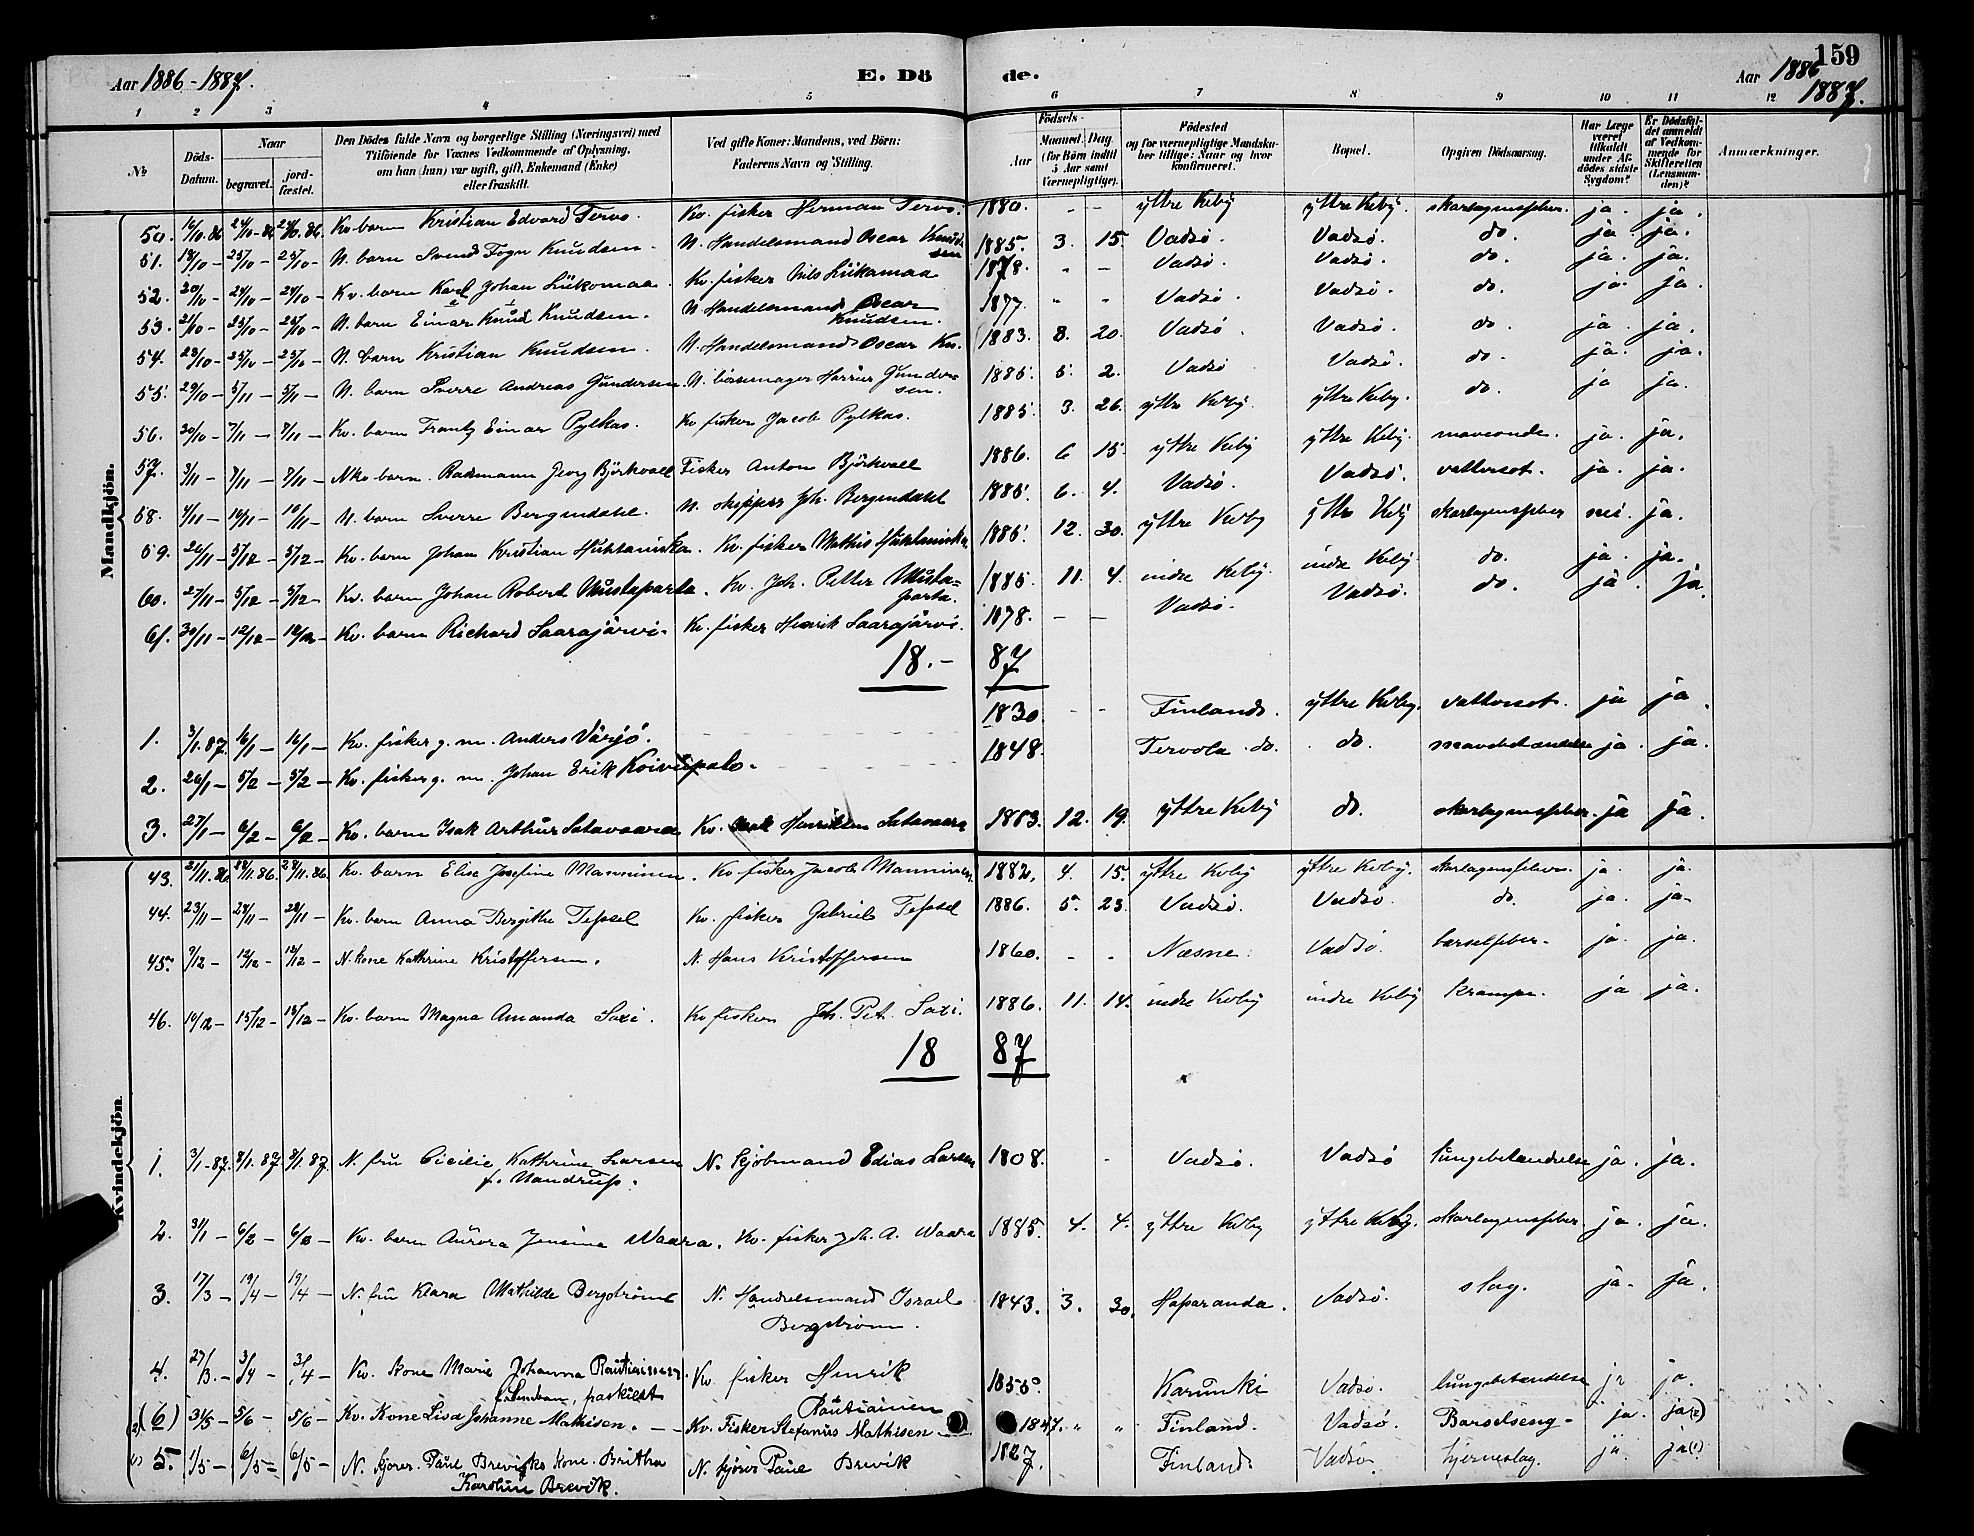 159
Aar 1886-1887. E. Dö de. Aar 1886 1887.
1 2 3 4 5 6 7 8 9 10 11 12
№
Döds-Datum.
Naar
begravet.
jord-fæstet.
Den Dödes fulde Navn og borgerlige Stilling (Næringsvei) med
Tilföiende for Voxnes Vedkommende af Oplysning,
om han (hun) var ugift, gift, Enkemand (Enke)
eller fraskilt.
Ved gifte Koner: Mandens, ved Börn:
Faderens Navn og Stilling.
Födsels-
Aar
Maaned. Dag.
(for Börn indtil
5 Aar samt
Værnepligtige).
Födested
og for værnepligtige Mandska-
ber tillige: Naar og hvor
konfirmeret.
Bopæl.
Opgiven Dödsaarsag.
Har Læge
været
tilkaldt
under Af-
dödes sidste
Sygdom?
Er Dödsfal-
det anmeldt
af Vedkom-
mende for
Skifteretten
(Lensman-
den)?
Anmærkninger.
Mandkjön.
50. 16/10.86 24/10-86 24/10.86 Kv. barn Kristian Edvard Tervo. Kv. fisker Herman Tervo. 1880. - - yttre Keby yttre Keby. skarlagensfeber. ja. ja.
51. 18/10 - 25/10 - 25/10 - N. barn Svend Fogn Knudsen. N. Handelsmand Oscar Knudsen 1885. 3. 15. Vadsø. Vadsø. do. ja ja.
52. 20/10 - 24/10 - 24/10 - Kv. barn Karl Johan Liikamaa. Kv. fisker Nils Liikamaa 1878. " - Vadsø. Vadsø. do. ja. ja.
53. 21/10 - 25/10 - 25/10 - N. barn Einar Knud Knudsen. N. Handelsmand Oscar Knudsen. 1877. " " Vadsø. Vadsø. do. ja. ja.
54. 23/10 - 25/10 - 25/10 - N. barn Kristian Knudsen. N. Handelsmand Oscar Kn. 1883. 8. 20. Vadsø. Vadsø. do. ja. ja.
55. 29/10 - 5/11 - 5/11 - N. barn Sverre Andreas Gundersen N. Gundersen. 1885. 5. 2. Vadsø Vadsø. do. ja. ja.
56. 30/10 - 7/11 - 7/11 - Kv. barn Frantz Einar Pylkas. Kv. fisker Jacob Pylkas. 1885. 3. 26. yttre Keby. yttre Keby. do. ja ja.
57. 3/11 - 7/11 - 7/11 - barn Georg Björkvall Fisker Anton Björkvall 1886. 6 15. yttre Keby yttre Keby. maveonde. ja. ja.
58. 4/11 - 14/11 - N. barn Sverre Bergendahl. N. Skipper Joh. Bergendahl 1885. 6. 4. Vadsø. Vadsø. vattersot. ja. ja.
59. 26/11 - 5/12 - 5/12 - Kv. barn Johan Kristian Huhtaniska. Kv. fisker Mathis Huhtaniska 1885. 12. 30. yttre Keby yttre Keby skarlagensfeber nei. ja.
60. 27/11 - 5/12 - 5/12 - Kv. barn Johan Robert Mustaparta. Kv. Joh. Petter Mustaparta. 1885. 11. 4. indre Keby. indre Keby. do. ja. ja.
61. 30/11 - 12/12 - 12/12 - Kv. barn Richard Saarajärvi. Kv. fisker Henrik Saarajärvi. 1878. - - Vadsø. Vadsø. do. ja. ja.
18.- 87
1. 3/1.87. 16/1 - 16/1 - Kv. fisker g. m. Anders Värjö. 1830. - - Finland. yttre Keby. vattersot. ja ja
2. 26/1 - 5/2 - 5/2 - Kv. fisker g. m. Johan Erik Koivupalo. 1848. Tervola. do. do. mavebetændelse ja. ja.
3. 27/1 - 6/2 - 6/2 - Kv. barn Isak Arthur Satavaara Kv. Henriksen Satavaara 1883. 12. 19. yttre Keby do. skarlagensfeber. ja ja.
Kvindekjön
43. 21/11.86. 28/11.86. 28/11.86. Kv. barn Elise Josefine Manninen. Kv. fisker Jacob Manninen. 1882. 4. 15. yttre Keby yttre Keby. skarlagensfeber. ja. ja.
44. 23/11 - 28/11 - 28/11 - Kv. barn Anna Bergithe Tessel Kv. fisker Gabriel Tessel 1886. 5. 23. Vadsø. Vadsø. do. ja. ja.
45. 9/12 - 12/12 - 12/12 - N. Kone Kathrine Kristoffersen. N. Hans Kristoffersen 1860. - - Næsne. Vadsø. barselfeber. ja. ja.
46. 14/12 - 15/12 - Kv. barn Magna Amanda Saxi. Kv fisker Joh. Pet. Saxi. 1886. 11. 14. indre Keby indre Keby krampe. ja ja.
18 87
1. 3/1-87. 8/1.87 8/1.87. N. fru Cicilie Kathrine Larsen f. Mandrup. N. Kjøbmand Edias Larsen 1808. - Vadsø. Vadsø lungebetændelse ja. ja.
2. 31/1 - 6/2 - 6/2 - Kv. barn Aurora Jensine Waara. Kv. fisker Joh. A. Waara 1885. 4. 4. yttre Keby yttre Keby. skarlagensfeber. ja. ja.
3. 17/3 - 19/4 - 19/4 - N. fru Klara Mathilde Bergstrøm N. Handelsmand Israel Bergstrøm. 1843. 3. 30. Haparanda. Vadsø. slag. ja. ja.
4. 27/3. - 3/4 - 3/4 - Kv. Kone Marie Johanna Rautiainen. Kv. fisker Henrik Rautiainen 1855. Karunki Vadsø. lungebetændelse ja ja.
(2) (6) 31/5 - 5/6 - 5/6 - Kv. Kone Lisa Johanne Mathisen. - - Kv. Fisker Stefanus Mathisen - 1847. " " Finland. Vadsø. Barselseng - ja. ja (2)
(1) 5. 1/5 - 6/5 - 6/5 - N. Kjører Paul Breviks Kone. Britha Karoline Brevik. N. Kjører Paul Brevik 1827. Finland Vadsø. hjerneslag. ja ja (1)